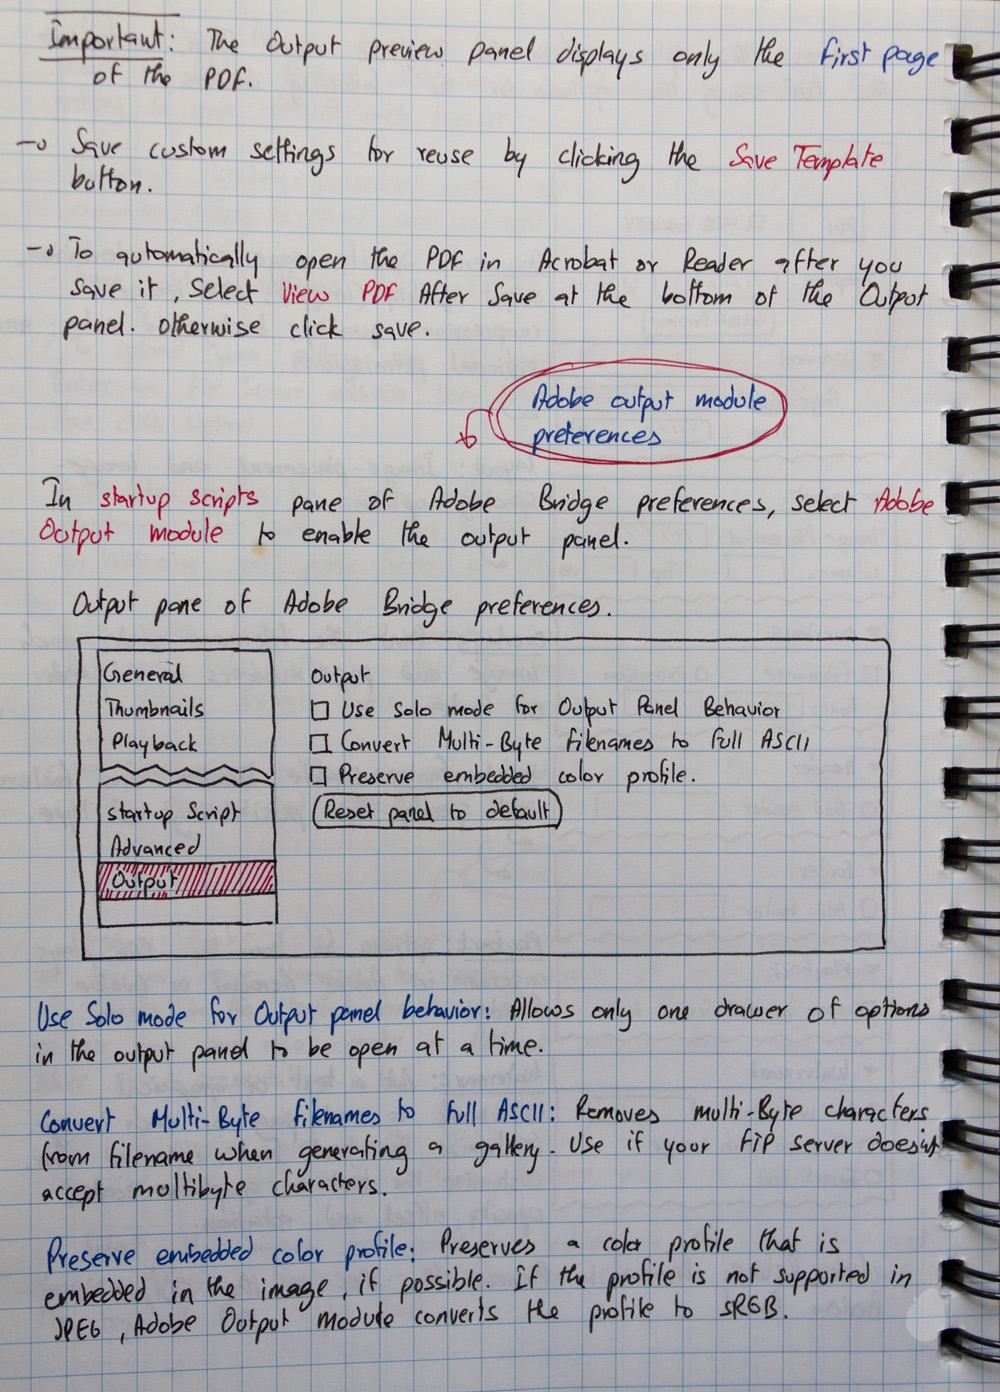 Important: The Output preview panel displays only the first page
of the PDF.
→ Save custom settings for reuse by clicking the Save Template
button.
→ To automatically open the PDF in Acrobat or Reader after you
save it, select View PDF After Save at the bottom of the Output
panel. otherwise click save.
Adobe output module
preferences
In startup scripts pane of Adobe Bridge preferences, select Adobe
Output module to enable the output panel.
Output pane of Adobe Bridge preferences.
General
Thumbnails
Playback
startup Script
Advanced
Output
Output
Use Solo mode for Output Panel Behavior
Convert Multi-Byte filenames to full ASCII
Preserve embedded color profile.
Reset panel to default
Use Solo mode for Output panel behavior: Allows only one drawer of options
in the output panel to be open at a time.
Convert Multi-Byte filenames to full ASCII: Removes multi-Byte characters
from filename when generating a gallery. Use if your FTP server doesn't
accept multibyte characters.
Preserve embedded color profile: Preserves a color profile that is
embedded in the image, if possible. If the profile is not supported in
JPEG, Adobe Output module converts the profile to sRGB.